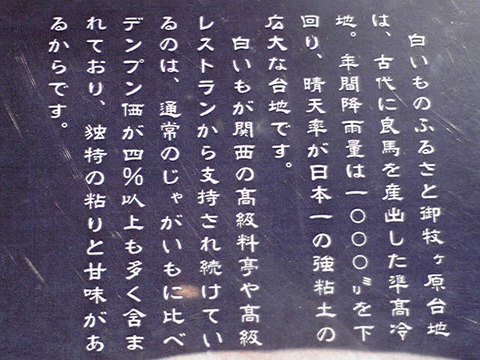 白いものふるさと御牧ヶ原台地
は、古代に良馬を産出した準高冷
地。年間降雨量は一〇〇〇㍉を下
回り、晴天率が日本一の強粘土の
広大な台地です。
白いもが関西の高級料亭や高級
レストランから支持され続けてい
るのは、通常のじゃがいもに比べ
デンプン価が四%以上も多く含ま
れており、独特の粘りと甘味があ
るからです。